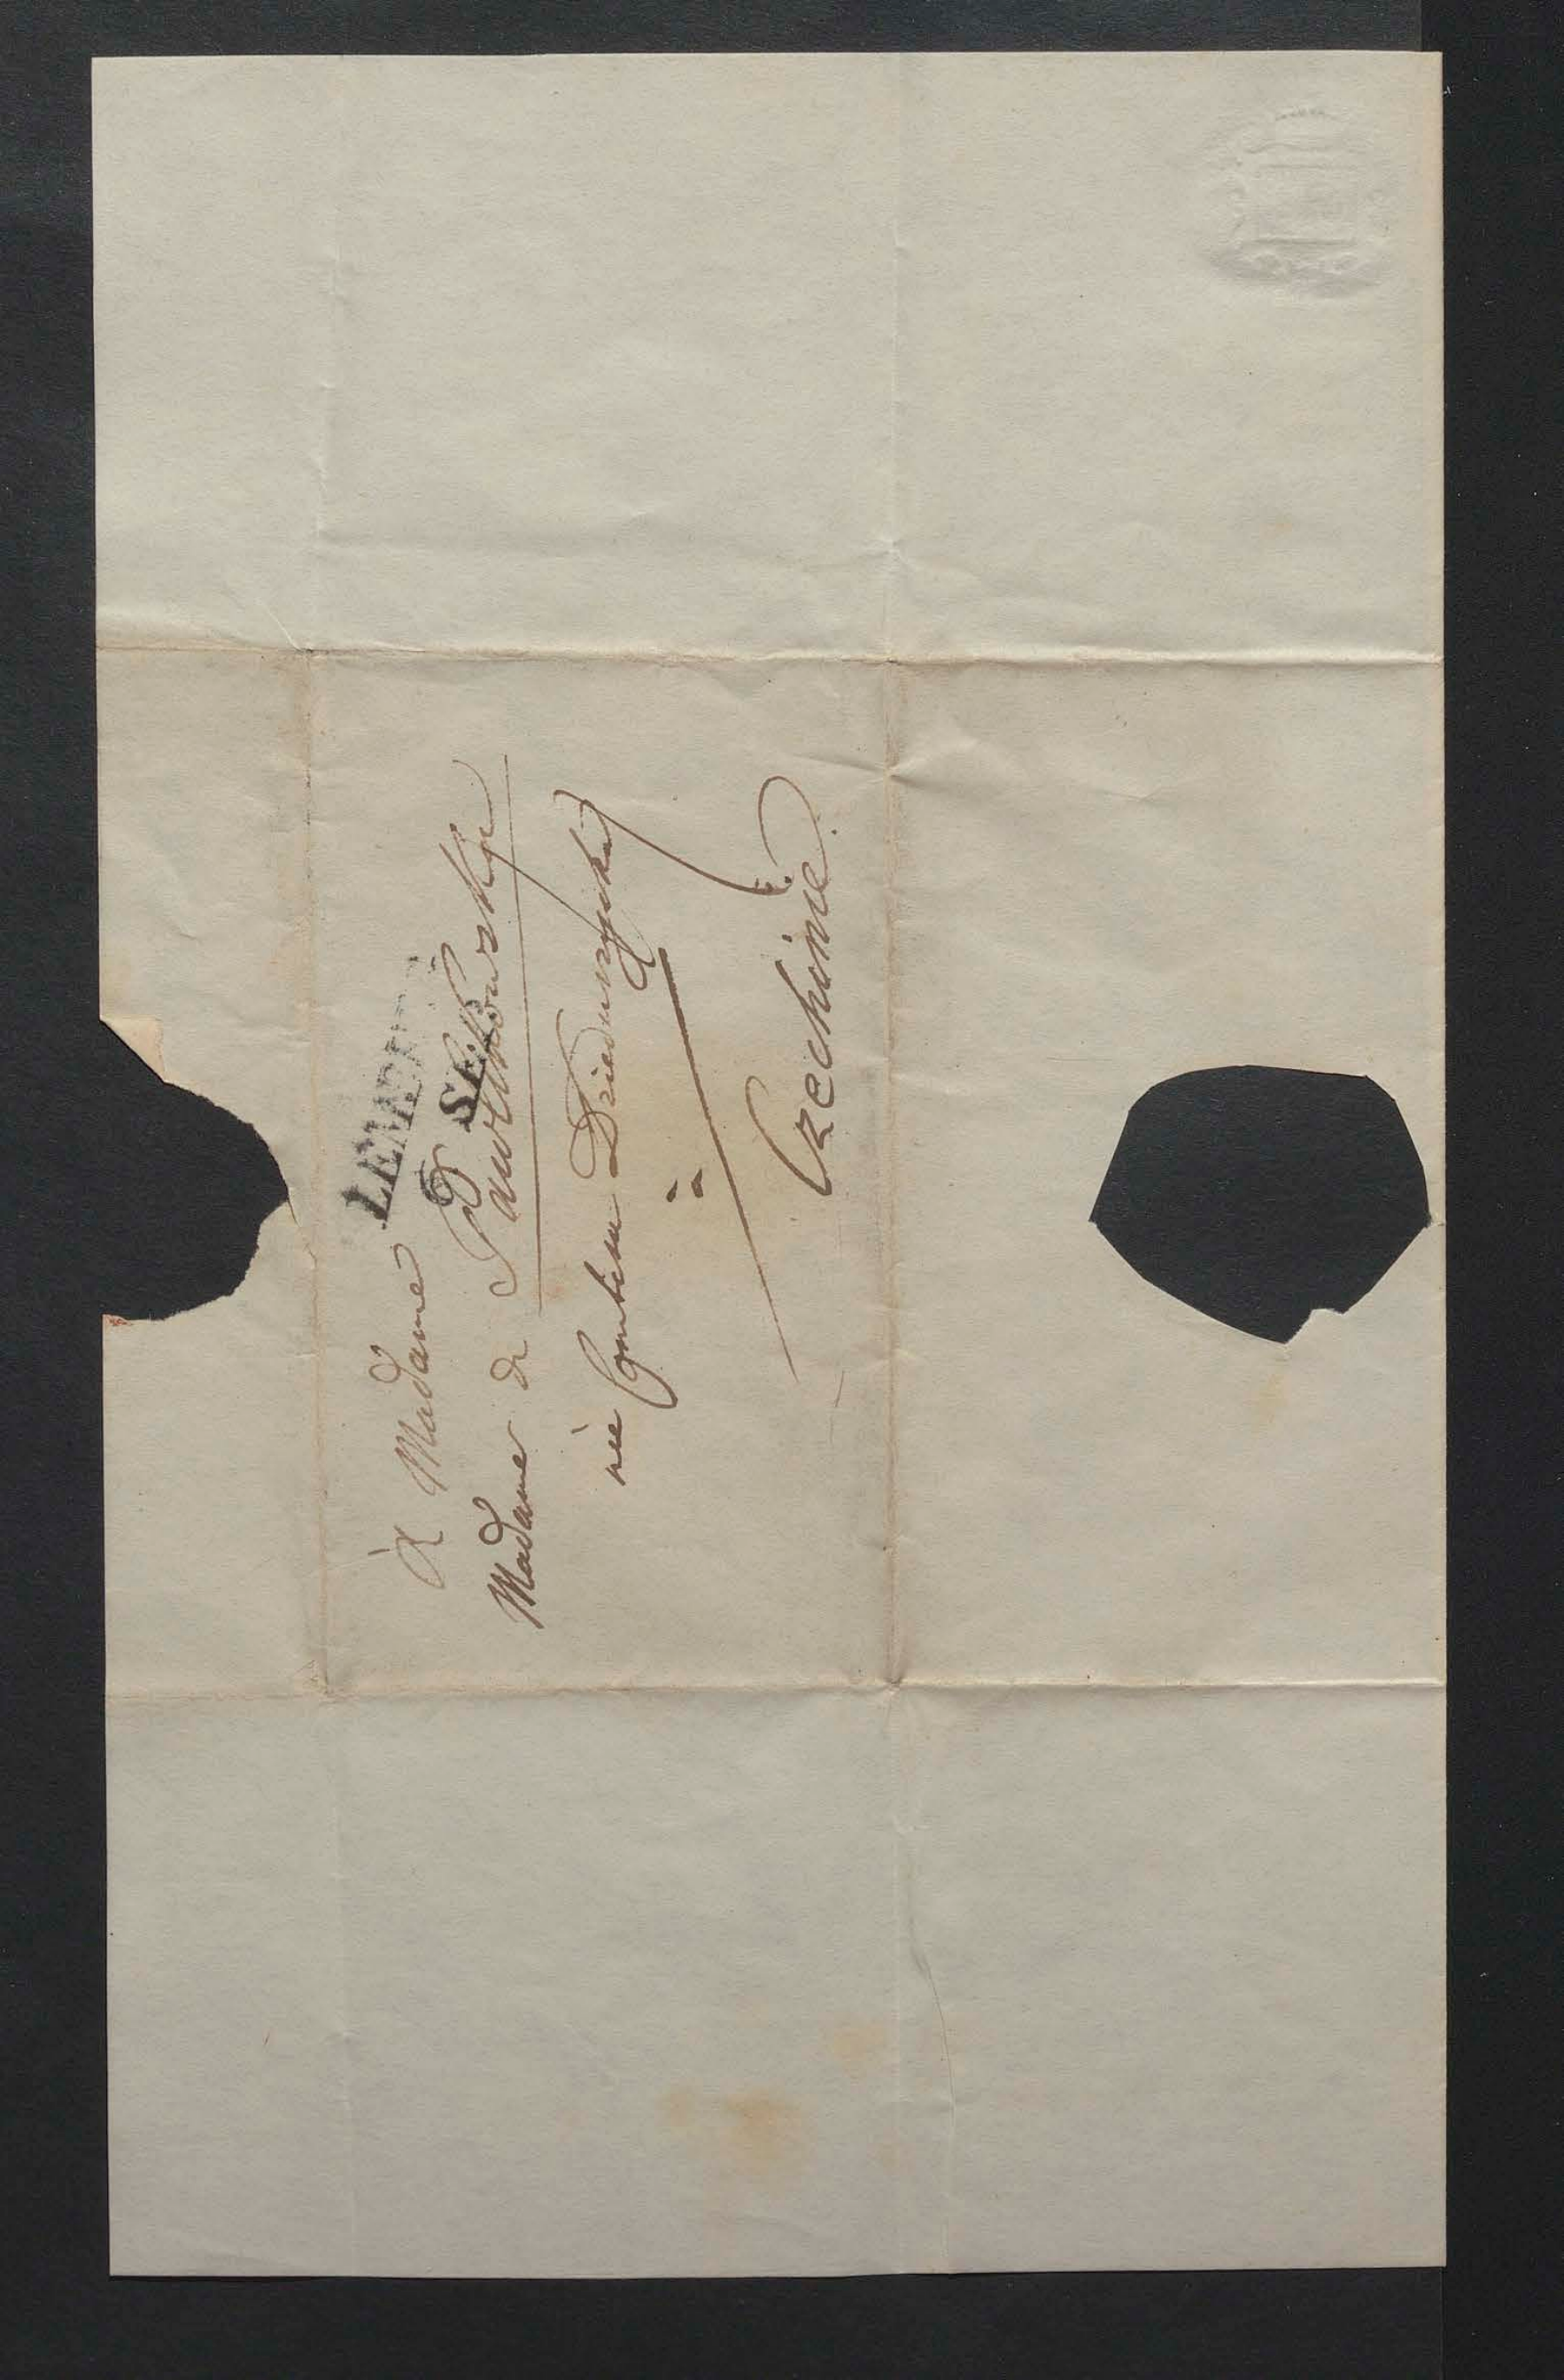 LEMBE
5 SE
À Madame
Madame de Pawlikowsky
née Comtesse Dzieduszycka
à
Czechinie.